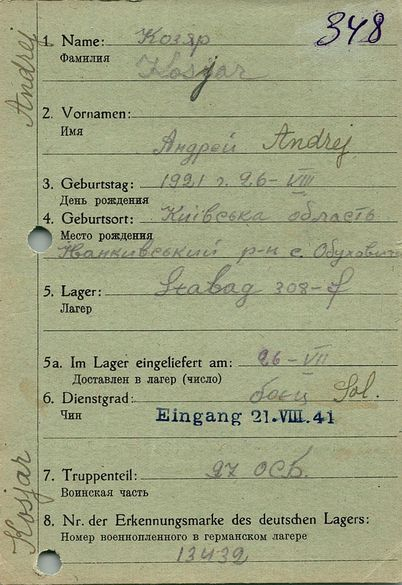 348
Andrej
1. Name: Козяр
Фамилия Kosjar
2. Vornamen:
Имя
Андрей Andrej
3. Geburtstag: 1921 г. 26-VIII
День рождения
4. Geburtsort: Київська область
Место рождения
Іванківський р-н с. Обуховичі
5. Lager: Stalag 308-
Лагер
5a. Im Lager eingeliefert am: 26-VII
Доставлен в лагер (число)
6. Dienstgrad: боец Sol.
Чин Eingang 21.VIII.41
7. Truppenteil: 27 ОСБ.
Воинская часть
8. Nr. der Erkennungsmarke des deutschen Lagers:
Номер военнопленного в германском лагере
13432
Kosjar